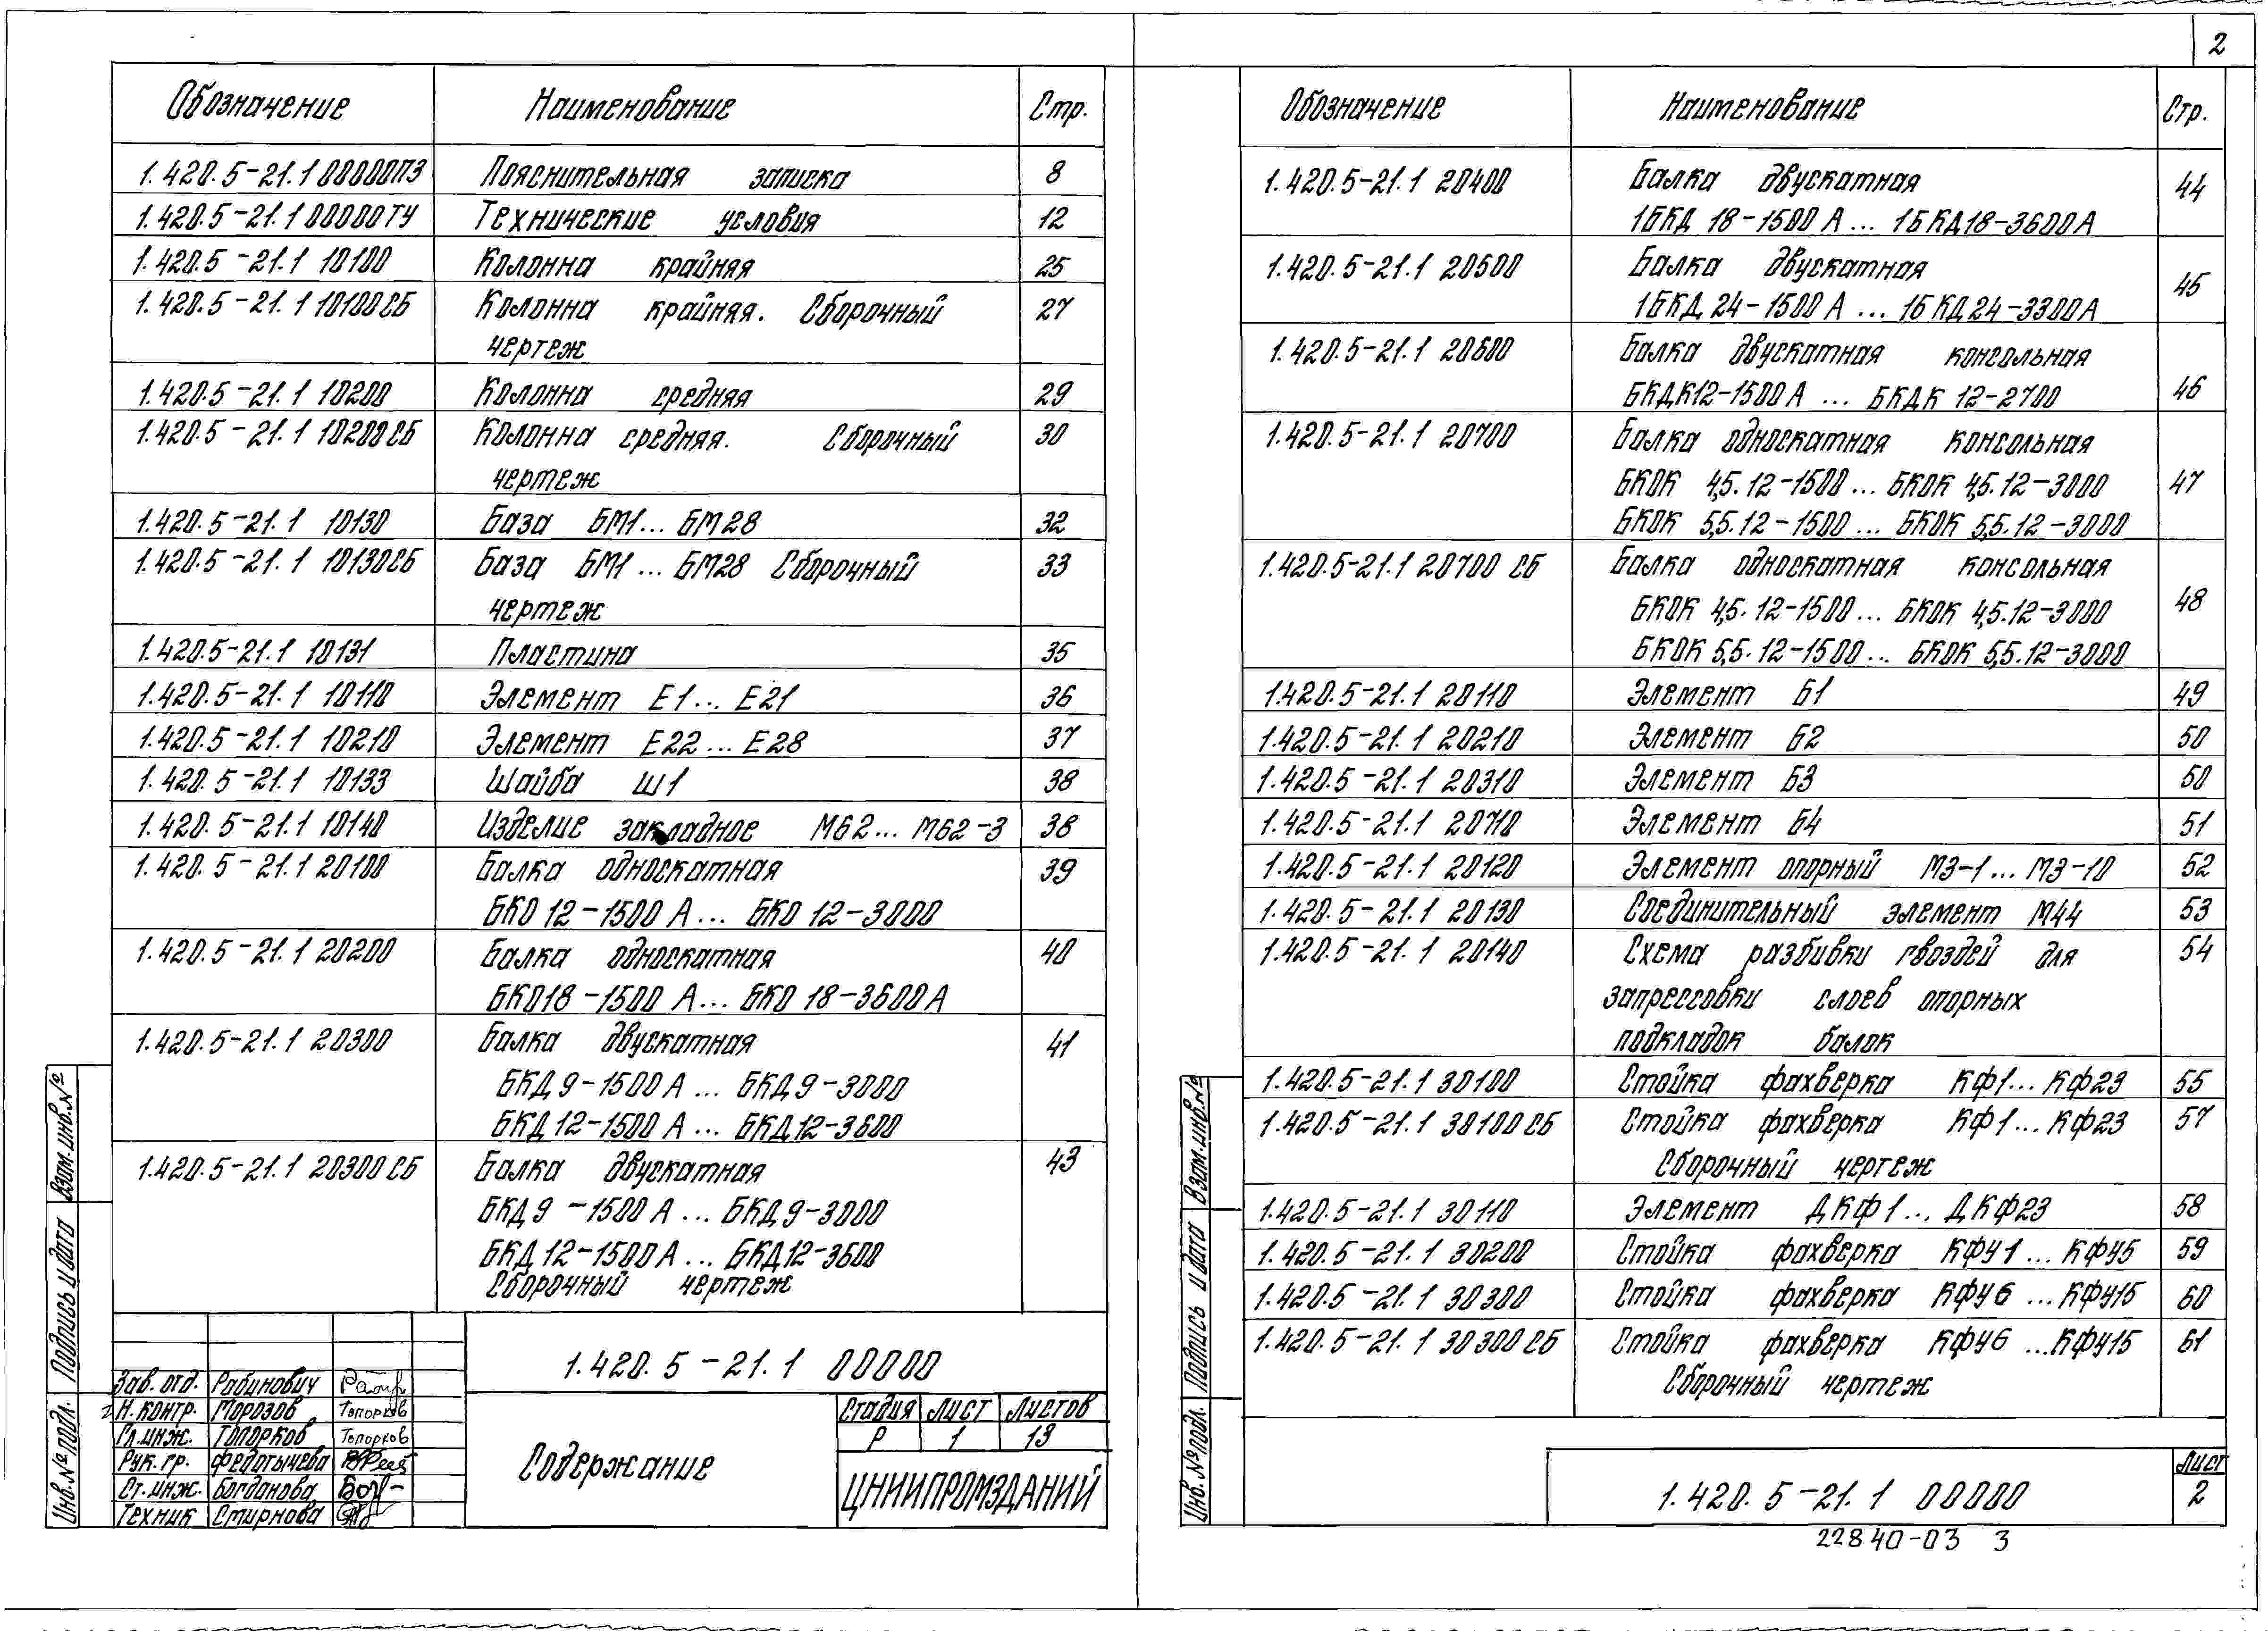 2
Обозначение Наименование Стр.
1.420.5-21.1 00000ПЗ Пояснительная записка 8
1.420.5-21.1 00000ТУ Технические условия 12
1.420.5-21.1 10100 Колонна крайняя 25
1.420.5-21.1 10100СБ Колонна крайняя. Сборочный 27
чертеж
1.420.5-21.1 10200 Колонна средняя 29
1.420.5-21.1 10200СБ Колонна средняя. Сборочный 30
чертеж
1.420.5-21.1 10130 База БМ1... БМ28 32
1.420.5-21.1 10130СБ База БМ1... БМ28 Сборочный 33
чертеж
1.420.5-21.1 10131 Пластина 35
1.420.5-21.1 10110 Элемент Е1... Е21 36
1.420.5-21.1 10210 Элемент Е22... Е28 37
1.420.5-21.1 10133 Шайба Ш1 38
1.420.5-21.1 10140 Изделие закладное М62... М62-3 38
1.420.5-21.1 20100 Балка односкатная 39
БКО 12-1500 А... БКО 12-3000
1.420.5-21.1 20200 Балка односкатная 40
БКО18-1500 А... БКО 18-3600А
1.420.5-21.1 20300 Балка двускатная 41
БКД 9-1500 А... БКД 9-3000
БКД 12-1500 А... БКД 12-3600
1.420.5-21.1 20300 СБ Балка двускатная 43
БКД 9-1500 А... БКД 9-3000
БКД 12-1500А... БКД12-3600
Сборочный чертеж
1.420.5-21.1 00000
Зав. отд. Рабинович
Н. контр. Морозов Топорков
Гл. инж. Топорков Топорков
Рук. гр. Федотычева
Ст. инж. Богданова
Техник Смирнова
Содержание
Стадия Лист Листов
Р 1 13
ЦНИИПРОМЗДАНИЙ
Взам. инв. №
Подпись и дата
Инв. № подл.
Обозначение Наименование Стр.
1.420.5-21.1 20400 Балка двускатная 44
1БКД 18-1500 А... 1БКД18-3600А
1.420.5-21.1 20500 Балка двускатная 45
1БКД 24-1500 А... 1БКД 24-3300А
1.420.5-21.1 20600 Балка двускатная консольная 46
БКДК12-1500А... БКДК 12-2700
1.420.5-21.1 20700 Балка односкатная консольная 47
БКОК 4,5.12-1500... БКОК 4,5.12-3000
БКОК 5,5.12-1500... БКОК 5,5.12-3000
1.420.5-21.1 20700 СБ Балка односкатная консольная 48
БКОК 4,5.12-1500... БКОК 4,5.12-3000
БКОК 5,5.12-1500... БКОК 5,5.12-3000
1.420.5-21.1 20110 Элемент Б1 49
1.420.5-21.1 20210 Элемент Б2 50
1.420.5-21.1 20310 Элемент Б3 50
1.420.5-21.1 20710 Элемент Б4 51
1.420.5-21.1 20120 Элемент опорный МЭ-1... МЭ-10 52
1.420.5-21.1 20130 Соединительный элемент М44 53
1.420.5-21.1 20140 Схема разбивки гвоздей для 54
запрессовки слоев опорных
подкладок балок
1.420.5-21.1 30100 Стойка фахверка КФ1... КФ23 55
1.420.5-21.1 30100 СБ Стойка фахверка КФ1... КФ23 57
Сборочный чертеж
1.420.5-21.1 30110 Элемент ДКФ1... ДКФ23 58
1.420.5-21.1 30200 Стойка фахверка КФУ1... КФУ5 59
1.420.5-21.1 30300 Стойка фахверка КФУ6... КФУ15 60
1.420.5-21.1 30300 СБ Стойка фахверка КФУ6... КФУ15 61
Сборочный чертеж
Взам. инв. №
Подпись и дата
Инв. № подл.
1.420.5-21.1 00000
Лист
2
22840-03 3